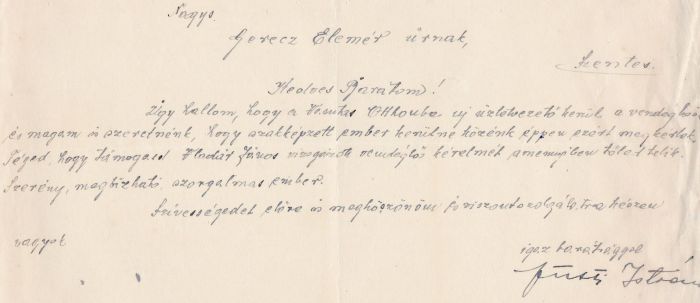 Nagys.
Gerecz Elemér úrnak,
Szentes.
Kedves Barátom!
Úgy hallom, hogy a Vasutas Otthonba új üzletvezető kerül a vendéglőbe
és magam is szeretnénk, hogy szakképzett ember kerülne közénk éppen ezért megkérlek
Téged, hogy támogasd János vizsgázott vendéglős kérelmét amennyiben tőled telik.
Szerény, megbízható, szorgalmas ember.
Szívességedet előre is megköszönöm s viszontszolgálatra készen
vagyok
igaz barátsággal
István